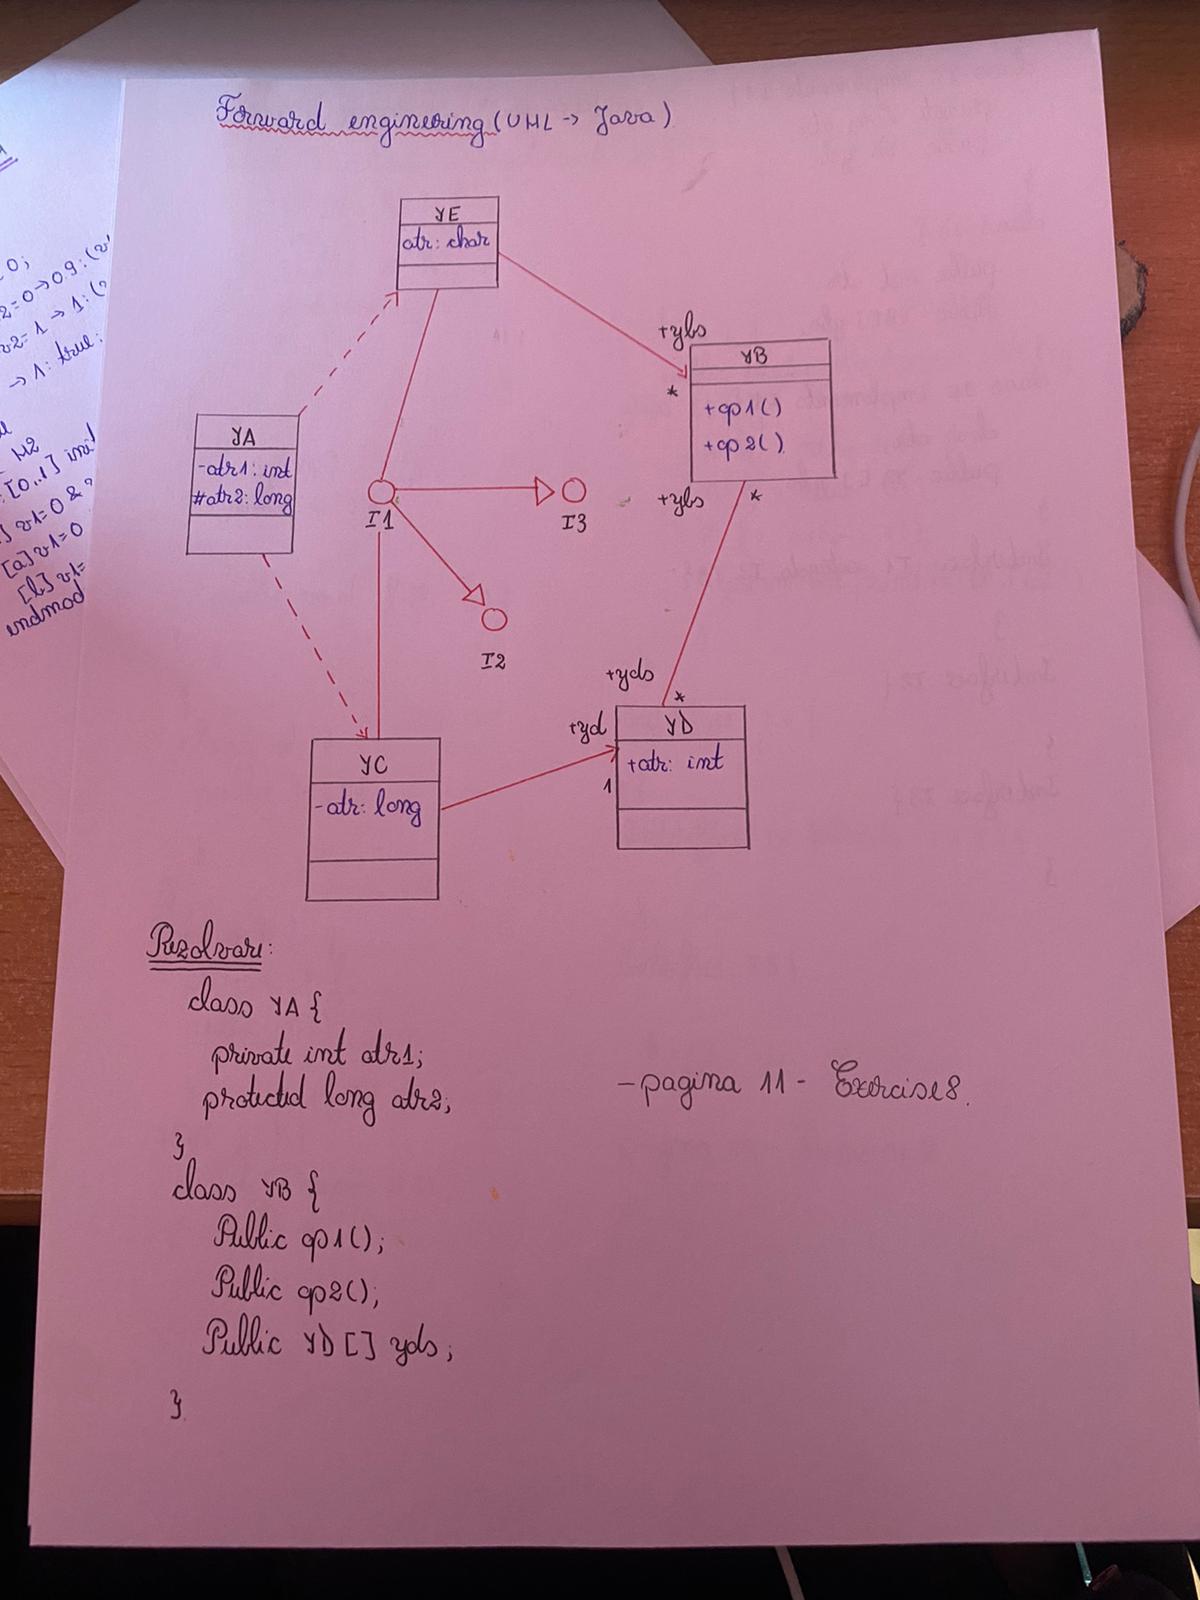 Forward engineering (UML -> Java)
YE
atr: char
+ybs
*
YB
+op1()
+op2()
YA
-atr1: int
#atr2: long
I1
I3
I2
+ybs
*
+yds
*
+yd
1
YD
+atr: int
YC
-atr: long
Rezolvare:
class YA {
private int atr1;
protected long atr2;
}
class YB {
Public op1();
Public op2();
Public YD[] yds;
}
-pagina 11 - Exercise8.
0;
2=0→0.9:(
v2=1→1:(
→1: true:
M2
[0..1] init
] v1=0 &
[a] v1=0
[b] v1=
endmod